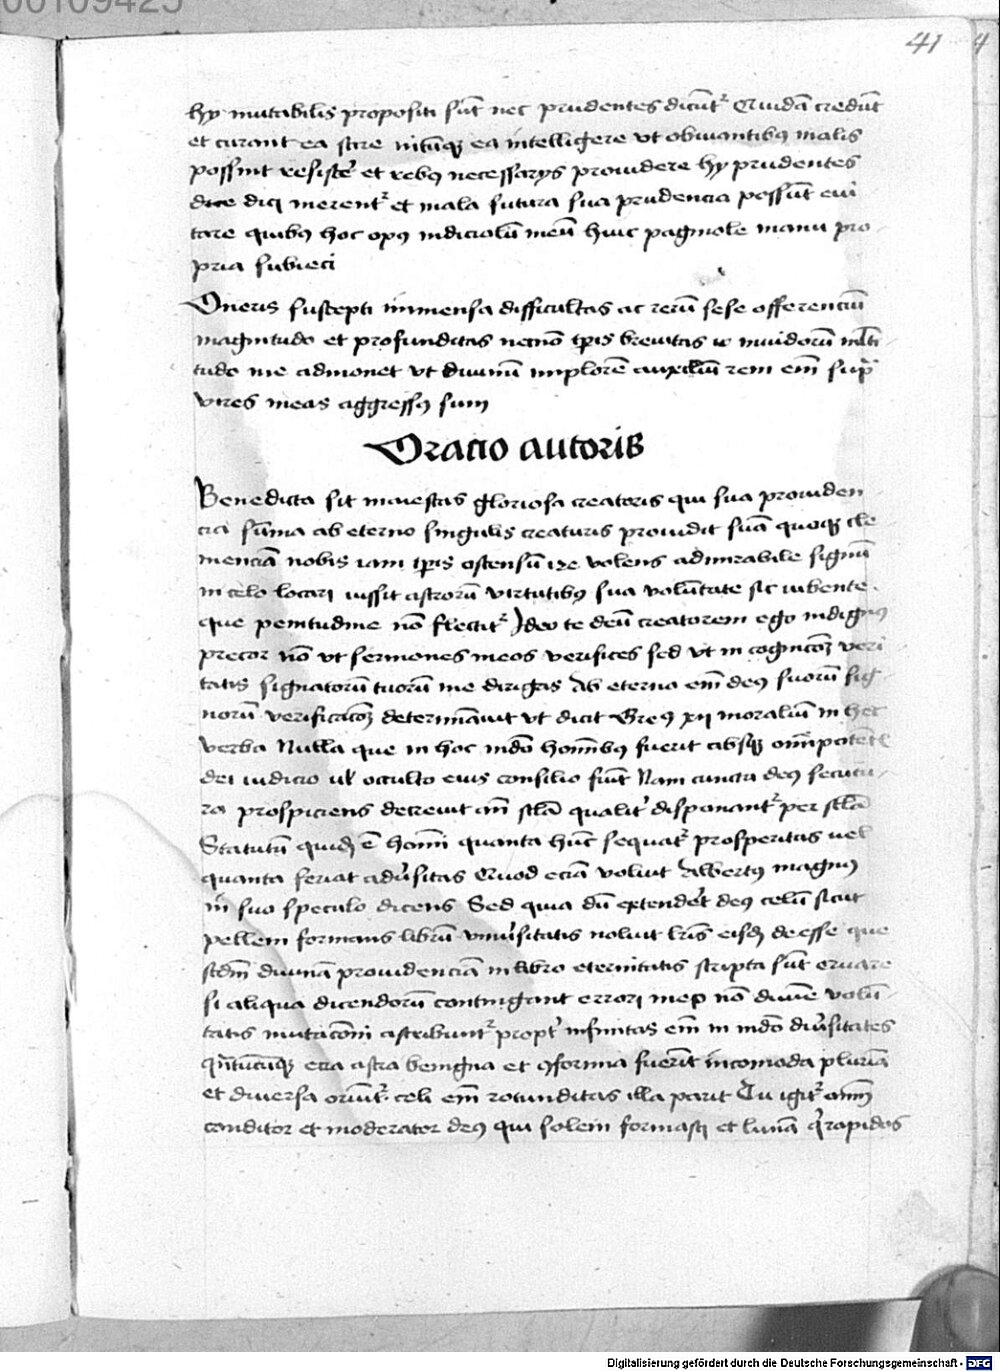 00109425
41
4
hy mutabilis propositi sūt nec prudentes dicūt᷑ Quidā credūt
et curant ea scire nitūtqꝫ ea intelligere vt obuiantibꝯ malis
possint resiste᷑ et rebꝯ necessarys prouidere hy prudentes
dici merent᷑ et mala futura sua prudencia possūt eui
tare quibꝯ hoc opꝯ indiciolū meū huic pagniole manu pro
pria subieci
Oneris suscepti immensa difficultas ac rerū sese offerenciū
magnitudo et profunditas necnō tꝑis breuitas inuidorū mlti
tudo me admonet vt diuinū implorē auxiliū rem em̄ supra
vires meas aggressꝯ sum
Oracio autoris
Benedicta sit maiestas gloriosa creatoris qui sua prouiden
cia sūma ab eterno singulis creaturis prouidit suā quoqꝫ cle
menciā nobis iam tꝑis ostensū ire volens admirabile signū
in celo locari iussit astrorū virtutibꝯ sua volūtate sic iubente
que penitudine nō flectit᷑ Ideo te deū creatorem ego indignꝯ
precor nō vt sermones meos verifices sed vt in cognicōꝫ veri
tatis signatorū tuorū me dirigas Ab eterno em̄ deꝯ suorū sig
norū verificacōꝫ determīauit vt dicit Greꝯ xij moraliū in hec
verba Nulla que in hoc mdo hominībꝯ fuerit absqꝫ omīpotētis
dei iudicio ul occulto eius consilio fiūt Nam cuncta deꝯ secutu
ra prospiciens decreuit an̄ scla qualit᷑ disponant᷑ per scla
Statutū quidē ē homī quanta hūc sequat᷑ prosperitas uel
quanta feriat adu᷑sitas Quod eciā voluit Albertꝯ magnꝯ
in suo speculo dicens Sed quia dū extender᷑et deꝯ celū sicut
pellem formans librū vniu᷑sitatis noluit lr̄is eisdē deesse que
scdm̄ diuinā prouidenciā in libro eternitatis scripta sūt
si aliqua dicendorū contingant errori meo nō diuine volū
tatis mutacōni astribunt᷑ propt᷑ infinitas em̄ in mdo diu᷑sitates
eciā astra benigna et ꝯforma fuerīt incomoda pluria
et diuersa oriūt᷑ celi em̄ rotunditas illa parit Tu igit᷑ om̄
conditor et moderator deꝯ qui solem formasti et lunā rapidos
Digitalisierung gefördert durch die Deutsche Forschungsgemeinschaft - DFG